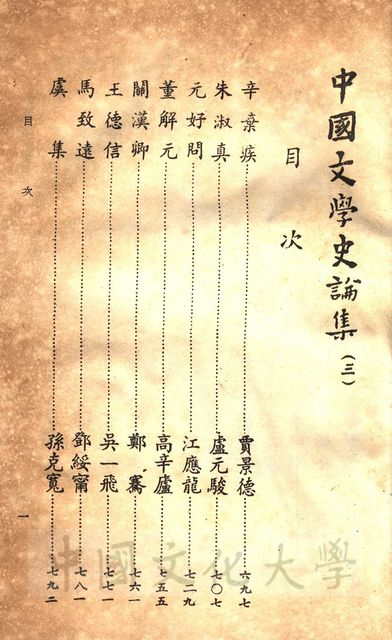 中國文學史論集(三)
目次
辛棄疾……賈景德……六九七
朱淑真……盧元駿……七〇七
元好問……江應龍……七二九
董解元……高辛廬……七五五
關漢卿……鄭騫……七六一
王德信……吳一飛……七七一
馬致遠……鄧綏甯……七八一
虞集……孫克寬……七九二
目次
一
中國文化大學